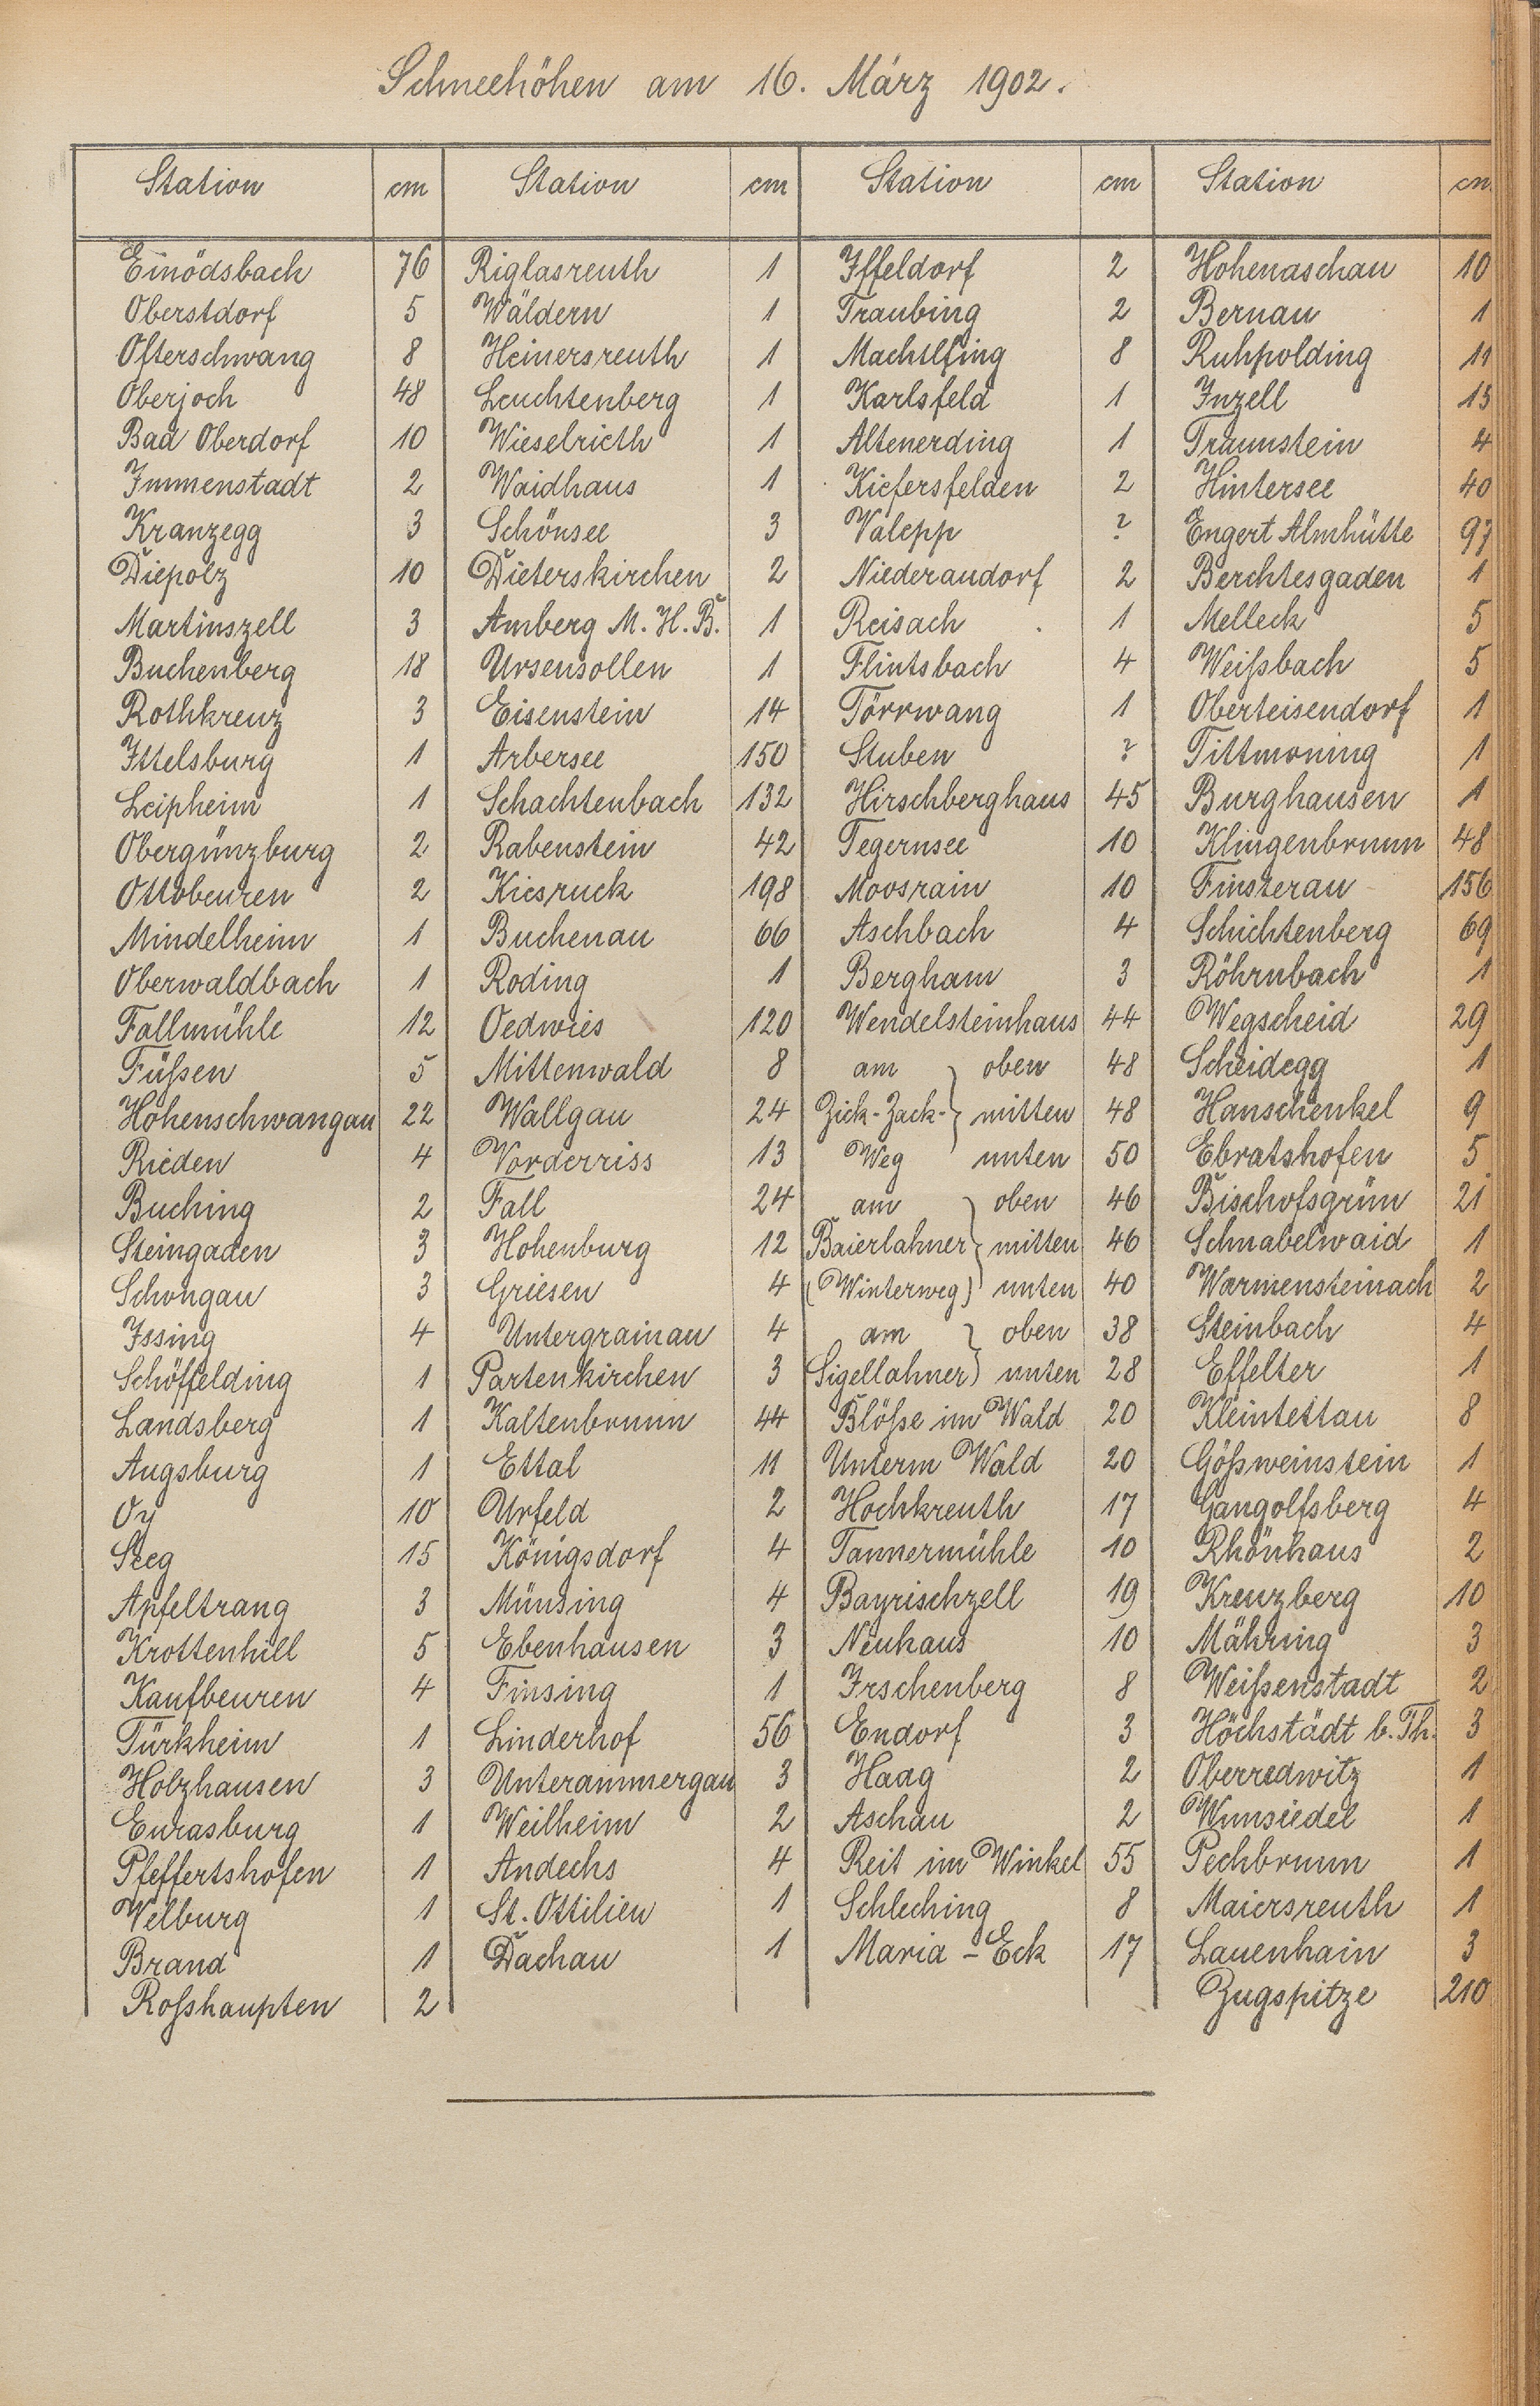 Schneehöhen am 16. März 1902.
Station cm Station cm Station cm Station cm
Einödsbach 76 Riglasreuth 1 Iffeldorf 2 Hohenaschau 10
Oberstdorf 5 Wäldern 1 Traubing 2 Bernau 1
Ofterschwang 8 Heinersreuth 1 Machtlfing 8 Ruhpolding 11
Oberjoch 48 Leuchtenberg 1 Karlsfeld 1 Inzell 13
Bad Oberdorf 10 Wieselrieth 1 Altenerding 1 Traunstein 4
Immenstadt 2 Waidhaus 1 Kiefersfelden 2 Hintersee 40
Kranzegg 3 Schönsee 3 Valepp ? Engert Almhütte 97
Diepolz 10 Dieterskirchen 2 Niederaudorf 2 Berchtesgaden 1
Martinszell 3 Amberg M. H. B. 1 Reisach 1 Melleck 5
Buchenberg 18 Ursensollen 1 Flintsbach 4 Weißbach 5
Rothkreuz 3 Eisenstein 14 Törrwang 1 Oberteisendorf 1
Ittelsburg 1 Arbersee 150 Stuben ? Tittmoning 1
Leipheim 1 Schachtenbach 132 Hirschberghaus 45 Burghausen 1
Obergünzburg 2 Rabenstein 42 Tegernsee 10 Klingenbrunn 48
Ottobeuren 2 Kiesruck 198 Moosrain 10 Finsterau 156
Mindelheim 1 Buchenau 66 Aschbach 4 Schichtenberg 69
Oberwaldbach 1 Roding 1 Bergham 3 Röhrnbach 1
Fallmühle 12 Oedwies 120 Wendelsteinhaus 44 Wegscheid 29
Füßen 5 Mittenwald 8 am oben 48 Scheidegg 1
Hohenschwangau 22 Wallgau 24 Zick-Zack- mitten 48 Hanschenkel 9
Rieden 4 Vorderriss 13 Weg unten 50 Ebratshofen 5
Buching 2 Fall 24 am oben 46 Bischofsgrün 21
Steingaden 3 Hohenburg 12 Baierlahner mitten 46 Schnabelwaid 1
Schongau 3 Griesen 4 (Winterweg) unten 40 Warmensteinach 2
Issing 4 Untergrainau 4 am oben 38 Steinbach 4
Schöffelding 1 Partenkirchen 3 Sigellahner unten 28 Effelter 1
Landsberg 1 Kaltenbrunn 44 Blöße im Wald 20 Kleintettau 8
Augsburg 1 Ettal 11 Unterm Wald 20 Gößweinstein 1
Oy 10 Urfeld 2 Hochkreuth 17 Gangolfsberg 4
Seeg 15 Königsdorf 4 Tannermühle 10 Rhönhaus 2
Apfeltrang 3 Münsing 4 Bayrischzell 19 Kreuzberg 10
Krottenhill 5 Ebenhausen 3 Neuhaus 10 Mähring 3
Kaufbeuren 4 Finsing 1 Irschenberg 8 Weißenstadt 2
Türkheim 1 Linderhof 56 Endorf 3 Höchstädt b. Th. 3
Holzhausen 3 Unterammergau 3 Haag 2 Oberredwitz 1
Eurasburg 1 Weilheim 2 Aschau 2 Wunsiedel 1
Pfeffertshofen 1 Andechs 4 Reit im Winkel 55 Pechbrunn 1
Velburg 1 St. Ottilien 1 Schleching 8 Maiersreuth 1
Brand 1 Dachau 1 Maria-Eck 17 Lauenhain 3
Roßhaupten 2 Zugspitze 210